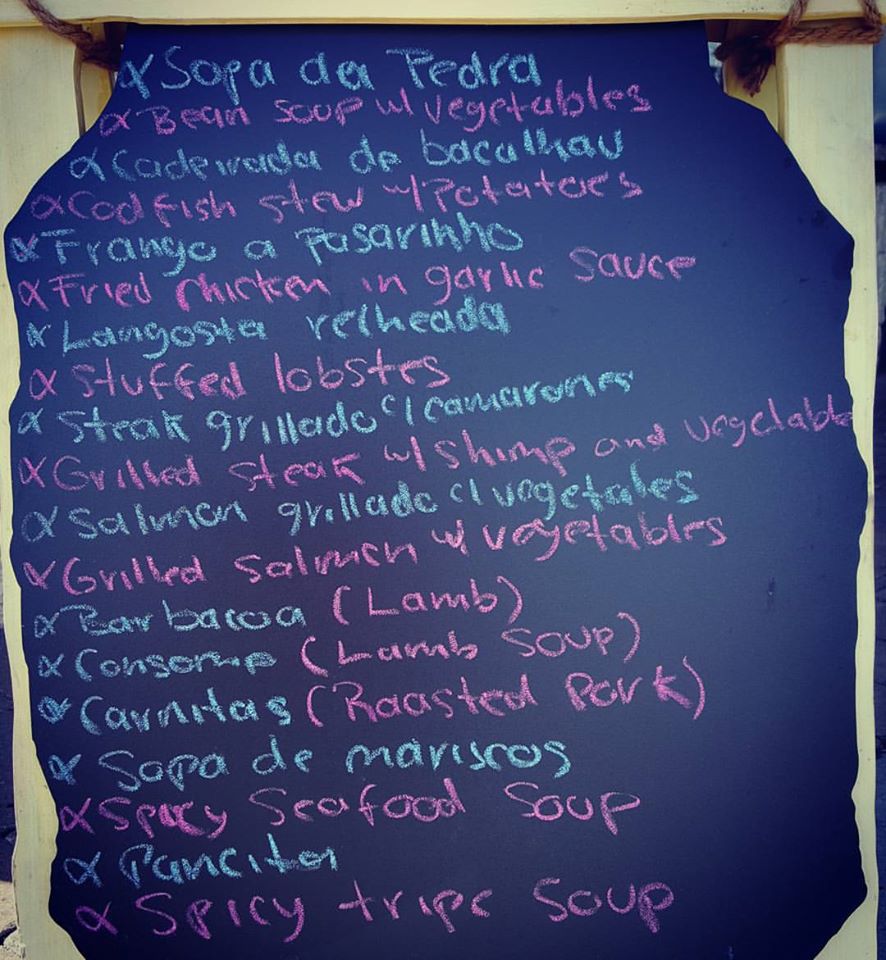 α Sopa da Pedra
α Bean soup w/ vegetables
α Cadeirada de bacalhau
α Codfish stew w/ Potatoes
α Frango a Pasarinho
α Fried chicken in garlic sauce
α Langosta recheada
α Stuffed lobstes
α Steak grillado c/ camarones
α Grilled steak w/ shimp and vegetable
α Salmon grillado c/ vegetales
α Grilled Salmon w/ vegetables
α Barbacoa (Lamb)
α Consome (Lamb Soup)
α Carnitas (Roasted Pork)
α Sopa de mariscos
α Spicy Seafood Soup
α Pancita
α Spicy tripe Soup